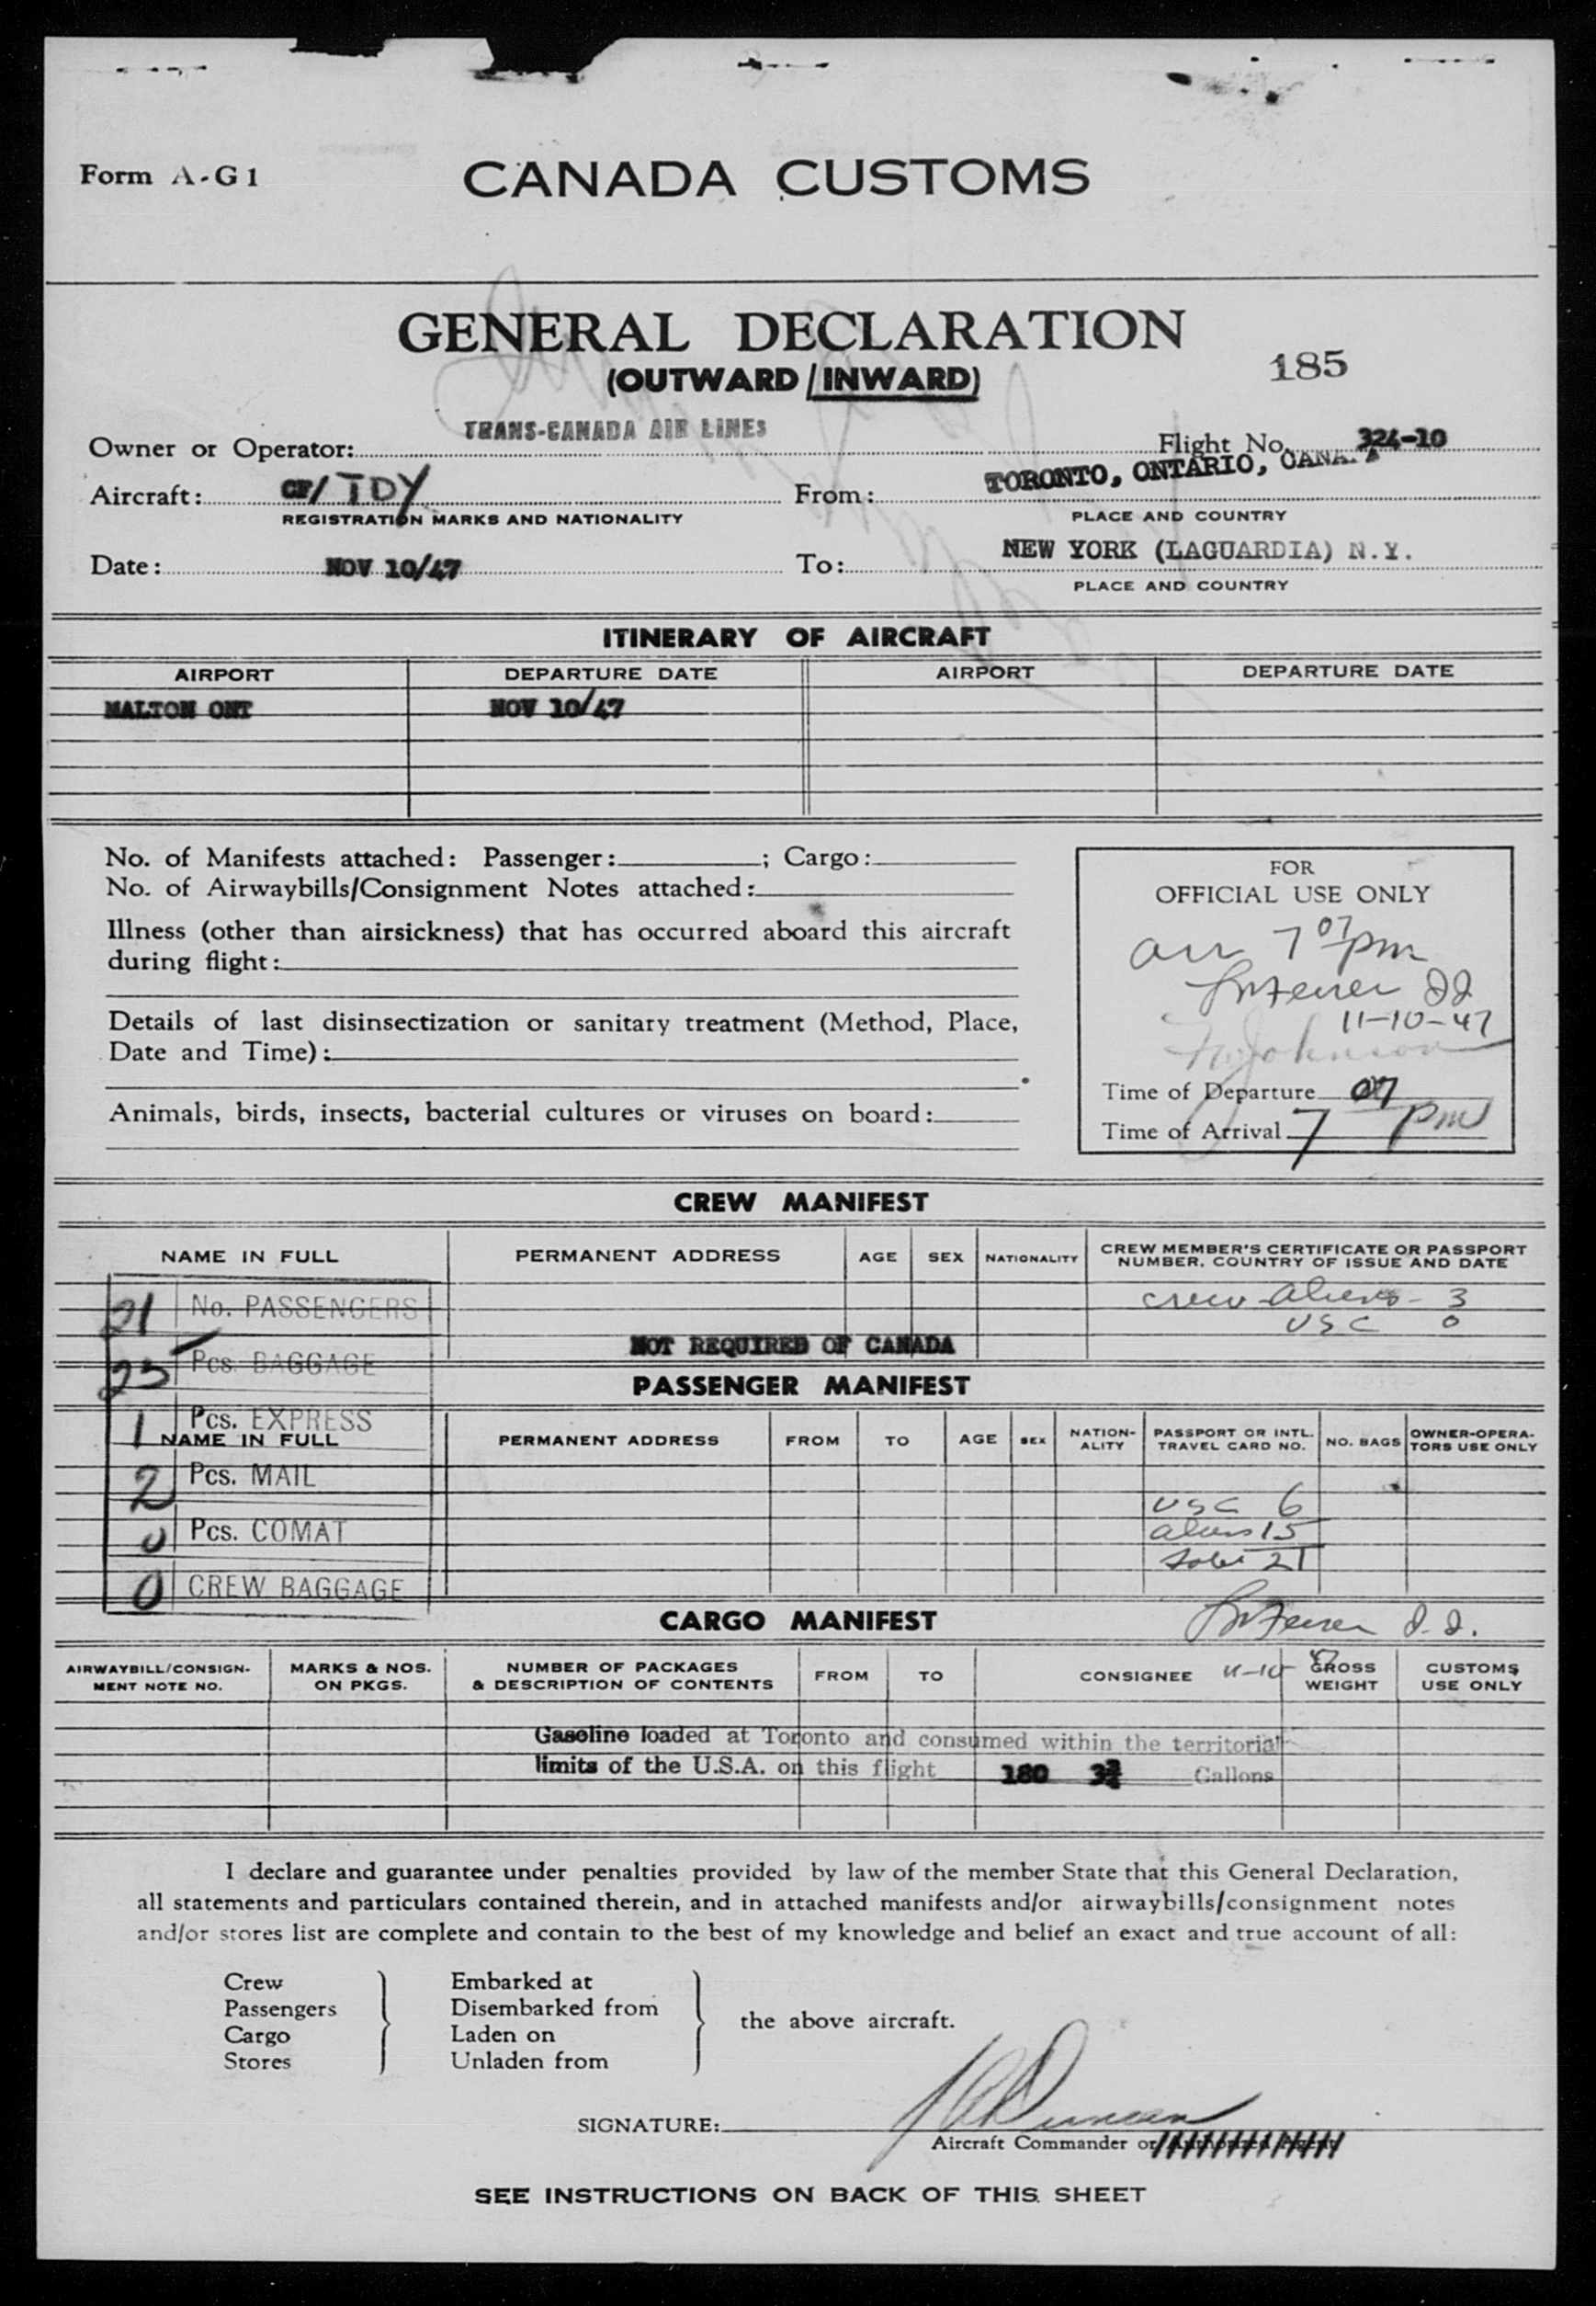 Form A-G1
CANADA CUSTOMS
GENERAL DECLARATION
(OUTWARD/INWARD)
185
TRANS-CANADA AIR LINES
Owner or Operator:
Flight No. 324-10
Aircraft: CF/TDY
From: TORONTO, ONTARIO, CANADA
REGISTRATION MARKS AND NATIONALITY
PLACE AND COUNTRY
Date: NOV 10/47
To: NEW YORK (LAGUARDIA) N.Y.
PLACE AND COUNTRY
ITINERARY OF AIRCRAFT
AIRPORT DEPARTURE DATE AIRPORT DEPARTURE DATE
MALTON ONT NOV 10/47
No. of Manifests attached: Passenger: ; Cargo:
No. of Airwaybills/Consignment Notes attached:
Illness (other than airsickness) that has occurred aboard this aircraft
during flight:
Details of last disinsectization or sanitary treatment (Method, Place,
Date and Time):
Animals, birds, insects, bacterial cultures or viruses on board:
FOR
OFFICIAL USE ONLY
arr 7 07 pm
11-10-47
Johnson
Time of Departure
Time of Arrival 7 07 pm
CREW MANIFEST
NAME IN FULL PERMANENT ADDRESS AGE SEX NATIONALITY CREW MEMBER'S CERTIFICATE OR PASSPORT
NUMBER, COUNTRY OF ISSUE AND DATE
crew aliens - 3
USC 0
NOT REQUIRED OF CANADA
21 No. PASSENGERS
23 Pcs. BAGGAGE
1 Pcs. EXPRESS
2 Pcs. MAIL
0 Pcs. COMAT
0 CREW BAGGAGE
PASSENGER MANIFEST
NAME IN FULL PERMANENT ADDRESS FROM TO AGE SEX NATION-
ALITY PASSPORT OR INTL.
TRAVEL CARD NO. NO. BAGS OWNER-OPERA-
TORS USE ONLY
USC 6
aliens 15
total 21
CARGO MANIFEST
AIRWAYBILL/CONSIGN-
MENT NOTE NO. MARKS & NOS.
ON PKGS. NUMBER OF PACKAGES
& DESCRIPTION OF CONTENTS FROM TO CONSIGNEE 11-10-47 GROSS
WEIGHT CUSTOMS
USE ONLY
Gasoline loaded at Toronto and consumed within the territorial
limits of the U.S.A. on this flight 180 Gallons
I declare and guarantee under penalties provided by law of the member State that this General Declaration,
all statements and particulars contained therein, and in attached manifests and/or airwaybills/consignment notes
and/or stores list are complete and contain to the best of my knowledge and belief an exact and true account of all:
Crew Embarked at
Passengers Disembarked from
the above aircraft.
Cargo Laden on
Stores Unladen from
SIGNATURE: Duncan
Aircraft Commander or Authorized Agent
SEE INSTRUCTIONS ON BACK OF THIS SHEET